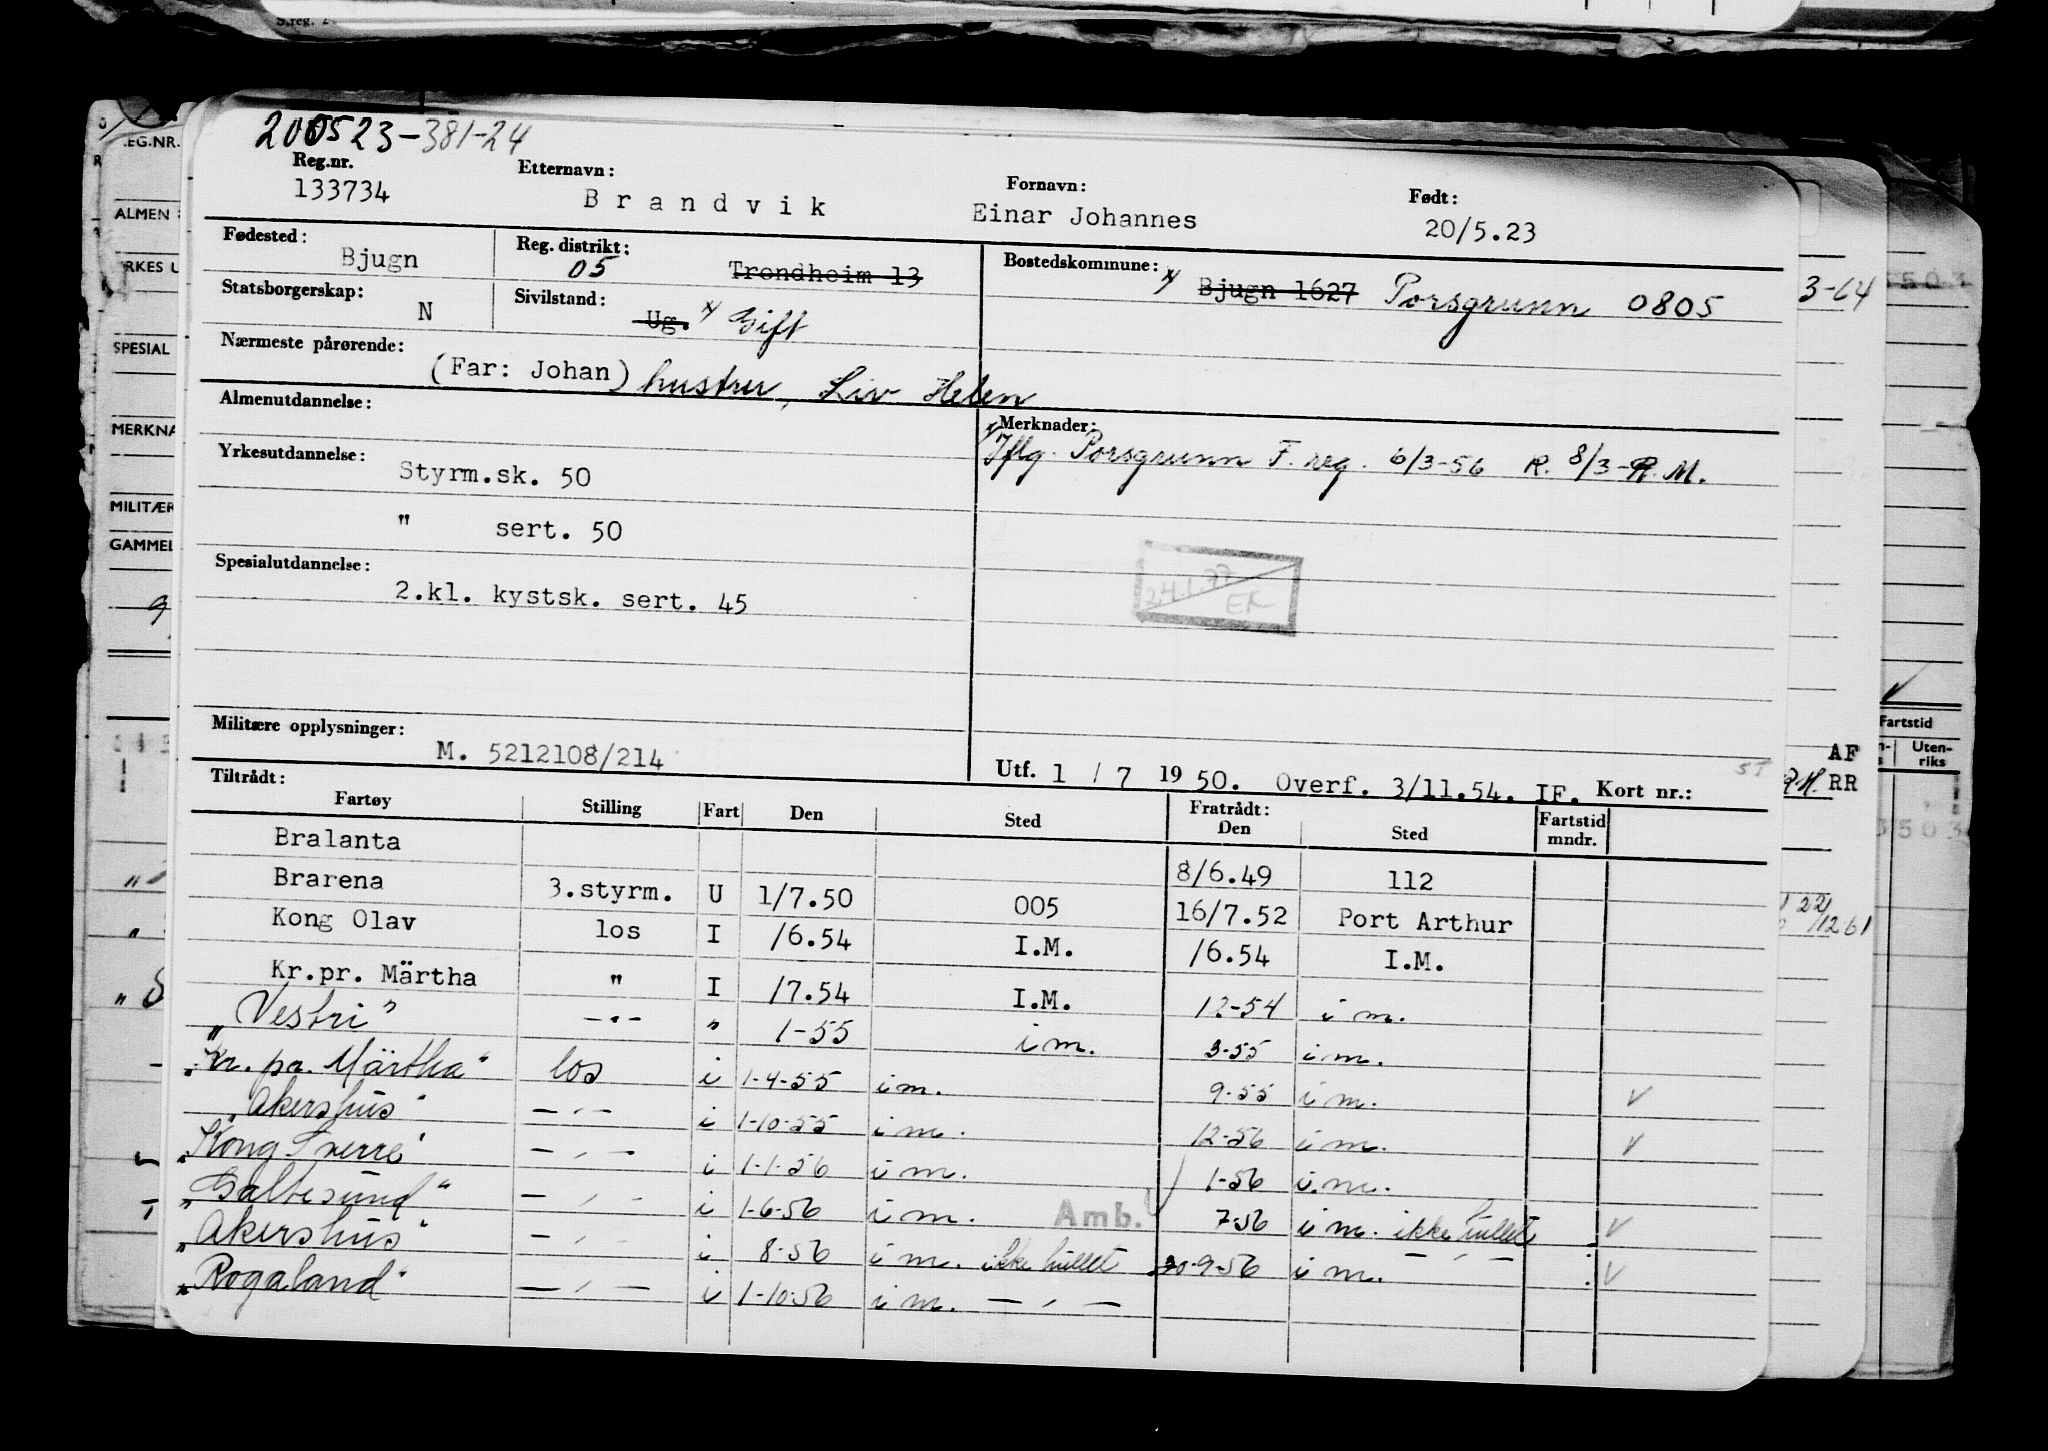 200523-381-24
Reg.nr. Etternavn: Fornavn: Født:
133734 Brandvik Einar Johannes 20/5.23
Fødested: Bjugn Reg. distrikt: 05 Trondheim 13 Bostedskommune: x Bjugn 1627 Porsgrunn 0805
Statsborgerskap: N Sivilstand: Ug. x Gift
Nærmeste pårørende: (Far: Johan) hustru, Liv Helen
Almenutdannelse: Merknader:
Iflg. Porsgrunn F. reg. 6/3-56 R. 8/3-R.M.
Yrkesutdannelse: Styrm.sk. 50
" sert. 50
24.1.77 EK
Spesialutdannelse: 2.kl. kystsk. sert. 45
Militære opplysninger: M. 5212108/214
Utf. 1 / 7 1950. Overf. 3/11.54. IF. Kort nr.:
Tiltrådt: Fratrådt:
Fartøy Stilling Fart Den Sted Den Sted Fartstid mndr.
Bralanta 8/6.49 112
Brarena 3.styrm. U 1/7.50 005 16/7.52 Port Arthur
Kong Olav los I /6.54 I.M. /6.54 I.M.
Kr.pr. Märtha " I /7.54 I.M. 12-54 i m.
"Vestri" -"- " 1-55 i m. 3-55 i m.
"Kr. pr. Märtha" los i 1-4-55 i m. 9-55 i m. v
"Akershus" -"- i 1-10-55 i m. 12-56 i m. v
"Kong Sverre" -"- i 1-1-56 i m. 1-56 i m.
"Galtesund" -"- i 1-6-56 i m. Amb. 7-56 i m. ikke hullet v
"Akershus" -"- i 8-56 i m. ikke hullet 30-9-56 i m. -"- v
"Rogaland" -"- i 1-10-56 i m. -"-
EG.NR.
ALMEN
RKES U
SPESIAL
MERKNA
MILITÆR
GAMMEL
3-64
Fartstid
Uten-
riks
AF
RR